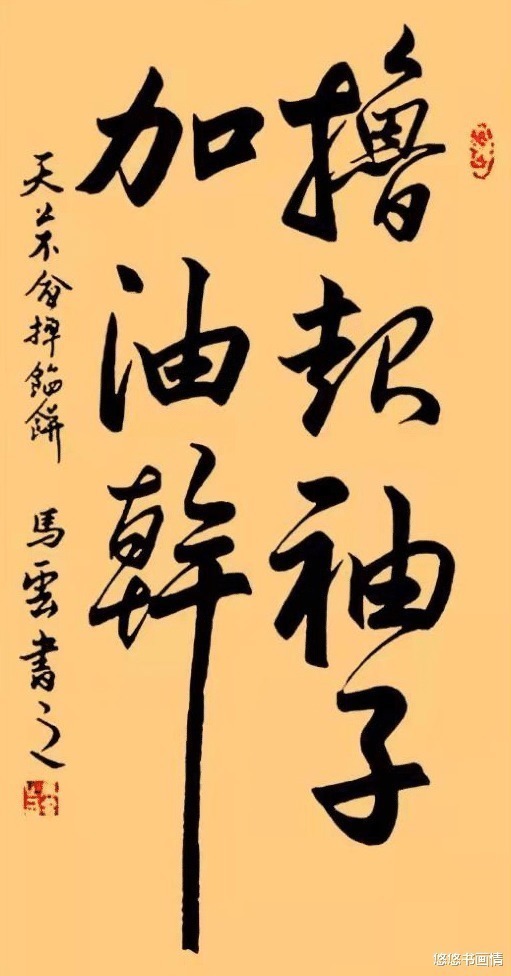 擼起袖子
加油幹
天上不會掉餡餅 馬雲書之
悠悠书画情